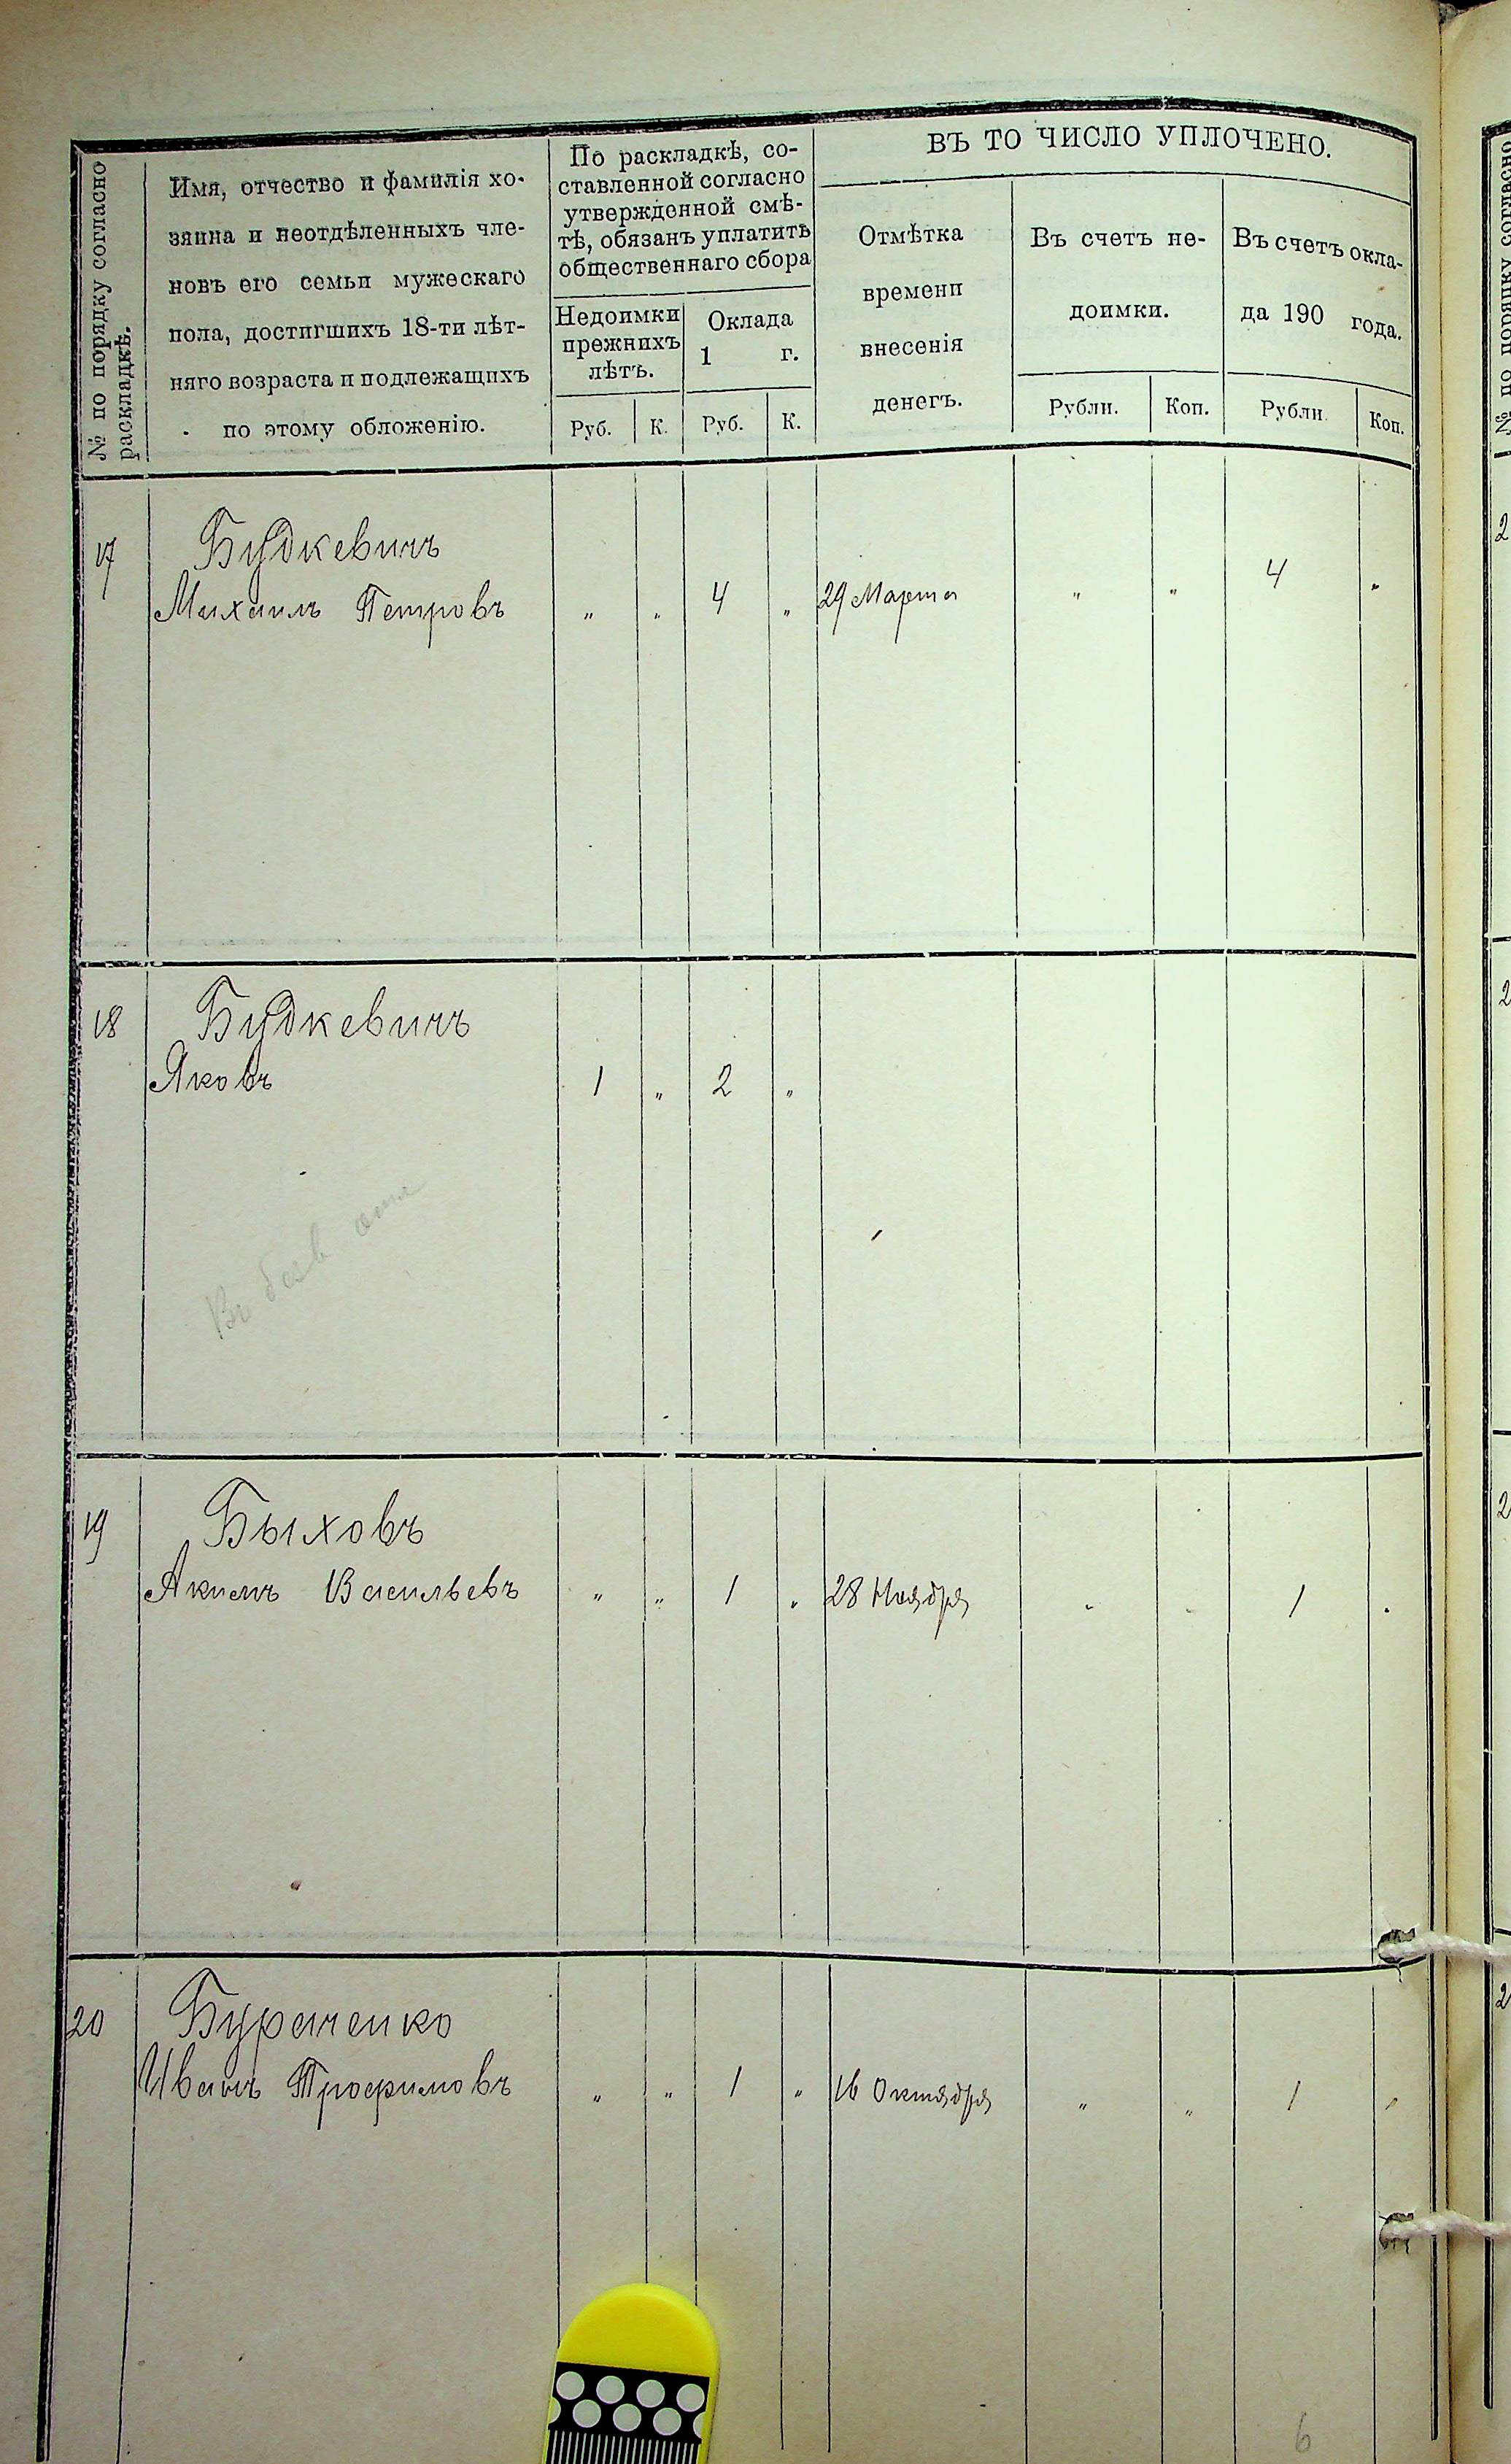 № по порядку согласно
раскладкѣ.
Имя, отчество и фамилія хо-
зяина и неотдѣленныхъ чле-
новъ его семьи мужескаго
пола, достигшихъ 18-ти лѣт-
няго возраста и подлежащихъ
по этому обложенію.
По раскладкѣ, со-
ставленной согласно
утвержденной смѣ-
тѣ, обязанъ уплатить
общественнаго сбора
Недоимки
прежнихъ
лѣтъ.
Оклада
1 г.
Руб. К. Руб. К.
ВЪ ТО ЧИСЛО УПЛОЧЕНО.
Отмѣтка
времени
внесенія
денегъ.
Въ счетъ не-
доимки.
Въ счетъ окла-
да 190 года.
Рубли. Коп. Рубли. Коп.
17 Будкевичъ
Михаилъ Петровъ " " 4 " 29 Марта " " 4 "
18 Будкевичъ
Яковъ 1 " 2 "
19 Быховъ
Акимъ Васильевъ " " 1 " 28 Ноября " " 1 "
20 Бураченко
Иванъ Трофимовъ " " 1 " 16 Октября " " 1 "
6